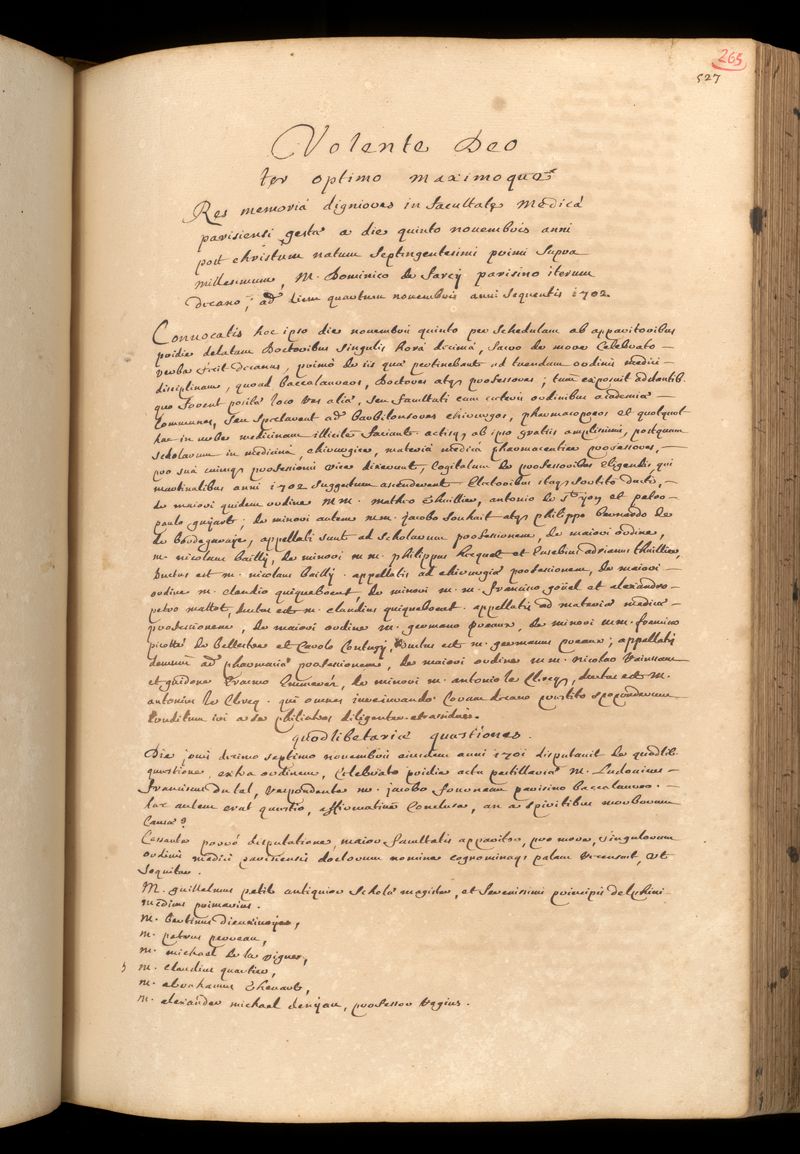 265
527
Volente Deo
ter optimo maximoque
Res memoriâ digniores in facultate medicâ
parisiensi gestæ a die quinto novembris anni
post christum natum septingentesimi primi supra
millesimum, M. Dominico De Farcy parisino iterum
Decano; ad diem quartum novembris anni sequentis 1702
Convocatis hoc ipso die novembris quinto per schedulam ab apparitoribus
pridie delatam Doctoribus singulis horâ decimâ, sacro de more celebrato
verba fecit decanus, primò de iis quæ pertinebant ad tuendam ordinis medici
disciplinam, quoad baccalaureos, Doctores atque professores; tum exposuit adstantib.
quo forent posita loco res aliæ, seu facultati cum cæteris ordinibus academiæ
communes, seu spectarent ad barbitonsores chirurgos, pharmacopoeos et quotquot
hac in urbe medicinam illicite faciunt. actisque ab ipso gratiis amplissimis, postquam
scholarum in medicinâ, chirurgiæ, materiæ medicæ pharmaceuticæ professores,
pro suâ cuiusque professionis vice dixerunt, cogitatum de professoribus eligendis, qui
matutinalibus anni 1702 suggestum ascenderent. Electoribus itaque sortito ductis,
de maiori quidem ordine MM. Mathæo Thuillier, antonio de St yon et petro
paulo guyart; de minori autem mm. jacobo souhait atque philippo bernardo de
de bordegaraye, appellati sunt ad scholarum professionem, de maiori ordine,
m. nicolaus bailly, de minori m m. philippus hecquet et Eusebius adrianus thuillier,
Ductus est m. nicolaus bailly. appellatis ad chirurgiæ professionem, de maiori
ordine m. claudio quiqueboeuf, de minori m. m. francisco goüel et alexandro
petro mattot, ductus est m. claudius quiqueboeuf. appellatis ad materiæ medicæ
professionem, de maiori ordine m. germano preaux, de minori mm. francisco
picotté de bellestre et Carolo Contugy, ductus est m. germanus preaux; appellatis
demum ad pharmaciæ professionem, de maiori ordine mm. nicolao
et guidone Erasmo Emmerez, de minori m. antonio le Clerc, ductus est M.
antonius le Clerc. qui omnes iureiurando coram decano præstito spoponderunt
 a se philiatros diligenter.
quodlibetariæ quæstiones.
Die jovis decimo septimo novembris eiusdem anni 1701 disputavit de quodlib.
quæstione, extra ordinem, celebrato pridie actu pastillariæ M. Ludovicus
franciscus du tal, respondente m. jacobo fourneau parisino baccalaureo.
hæc autem erat quæstio, affirmativè conclusa, an a spiritibus morborum
causa?
Cessante porrò disputatione, maior facultatis apparitor, pro more, singulorum
ordinis medici parisiensis doctorum nomina cognominaque palam recensuit, ut
sequitur.
M. guillelmus petit antiquior scholæ magister, et serenissimi principis delphini
medicus primarius.
m. bertinus dieuxivoye,
m. petrus perreau,
m. michael de la vigne,
5 m. claudius quartier,
m. abrahamus thevart,
m. alexander michael denyau, professor regius.